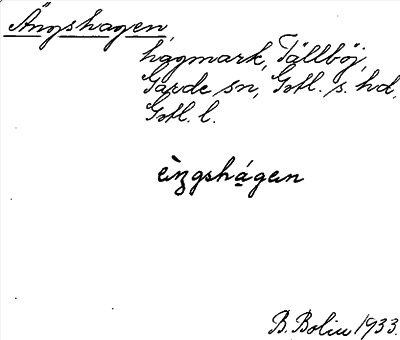 Ängshagen,
hagmark, Tällböj,
Garde sn, Gotl. s. hd,
Gotl. l.
èŋgshágen
B. Bolin 1933.